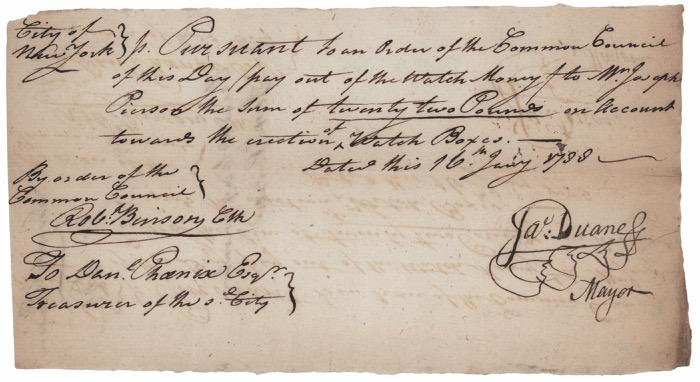 City of
New York } ss. Pursuant to an Order of the Common Council
of this Day / pay out of the Watch Money / to Mr. Joseph
Pierson the Sum of twenty two Pounds on Account
towards the erection of Watch Boxes.
Dated this 16th Jany 1788
By order of the
Common Council }
Robt. Binson Clk
Jas. Duane
Mayor
To Danl. Phœnix Esqr.
Treasurer of the sd. City }